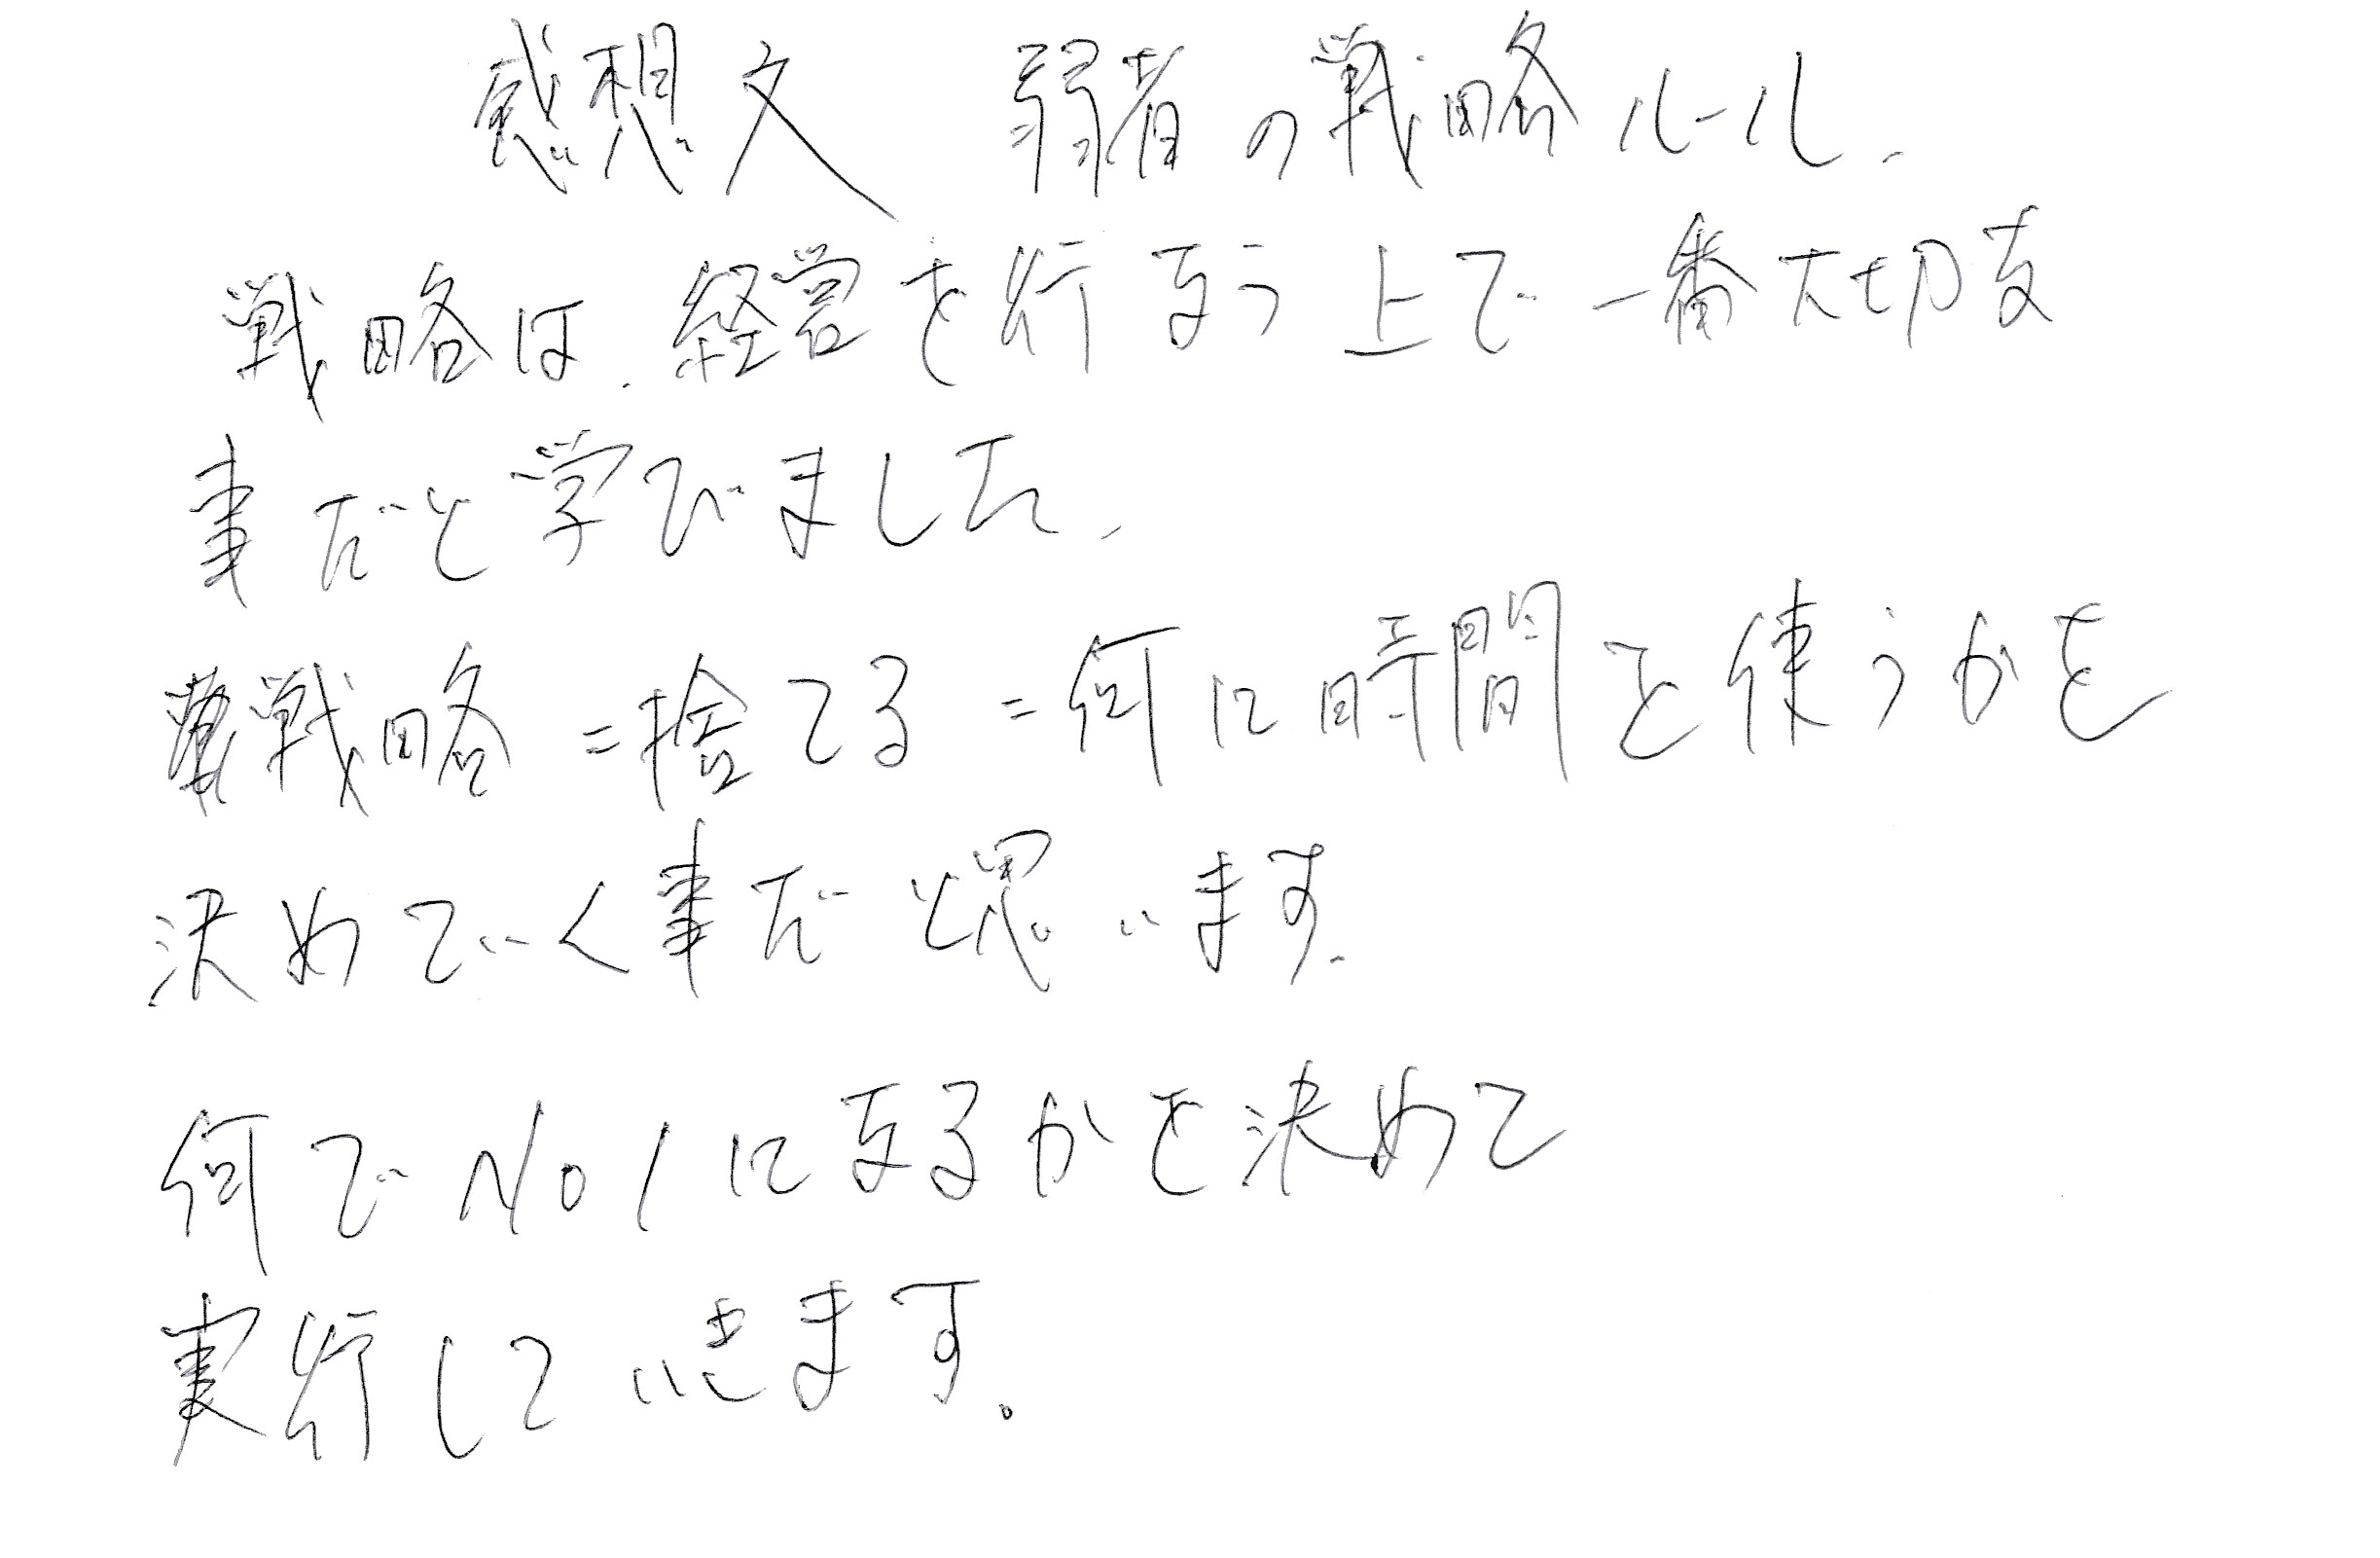 感想文 弱者の戦略ルール.
戦略は.経営を行なう上で一番大切な
事だと学びました.
戦略=捨てる=何に時間を使うかを
決めていく事だと思います.
何でNO1になるかを決めて
実行していきます。